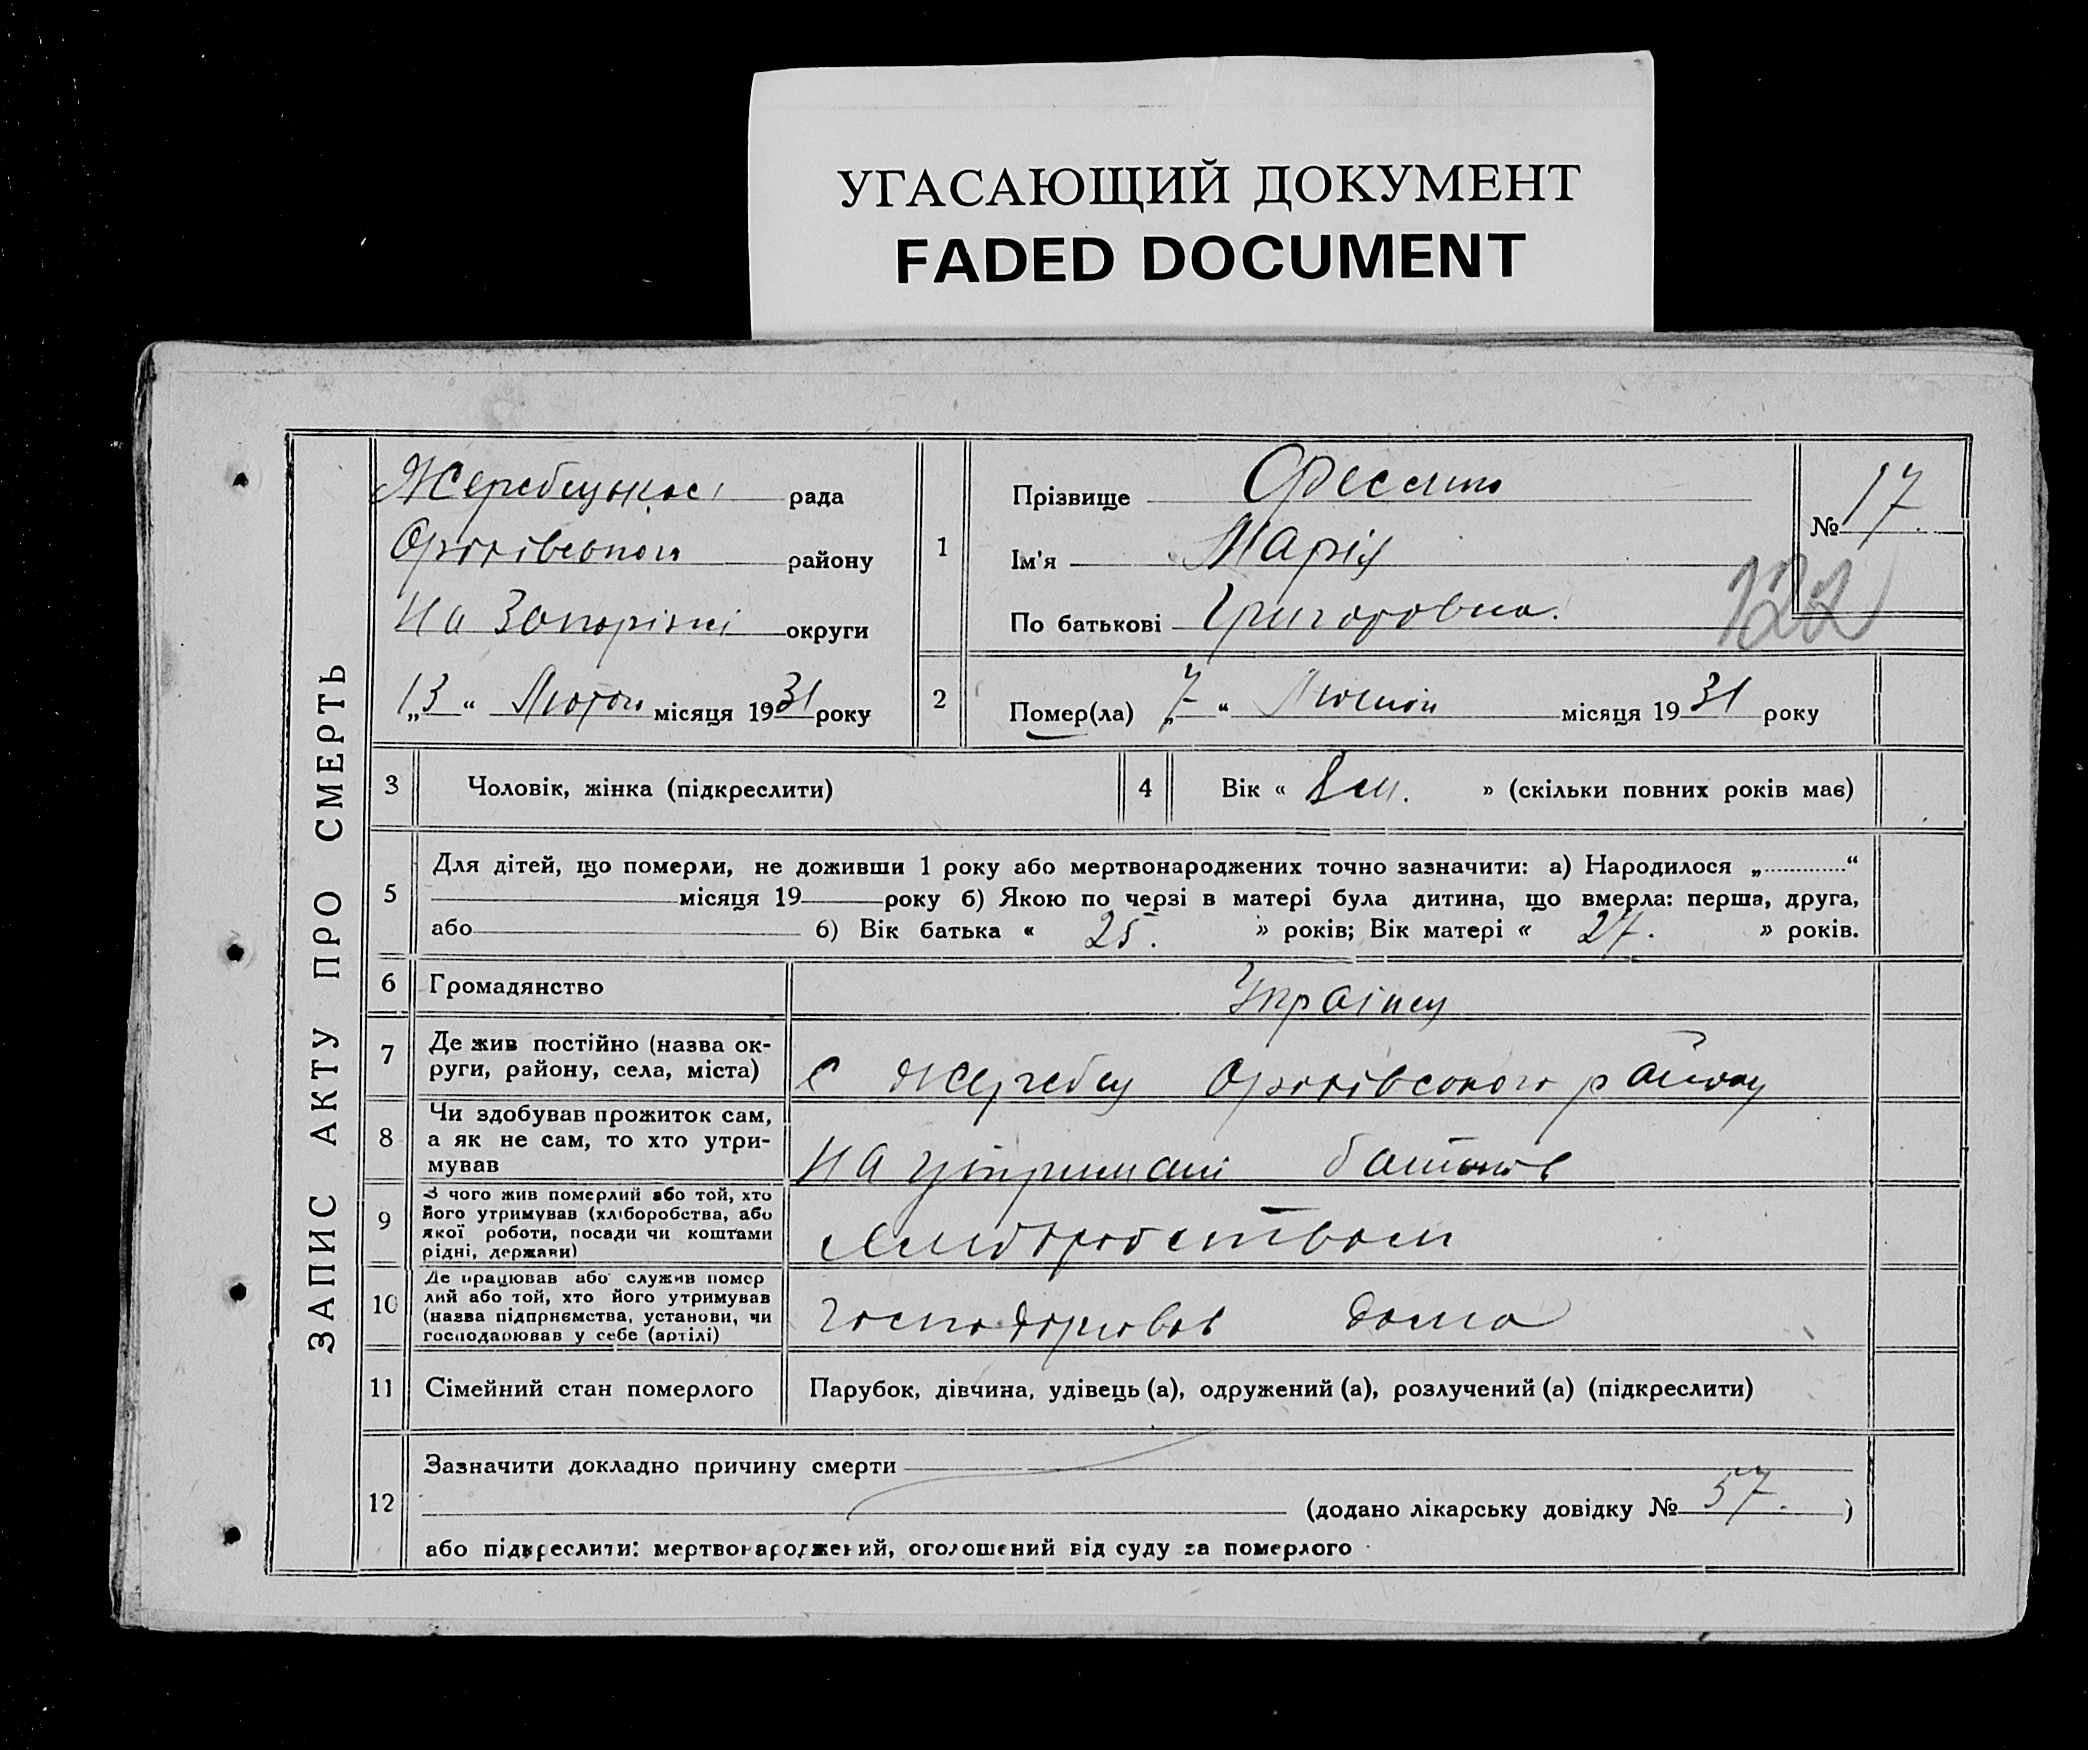 УГАСАЮЩИЙ ДОКУМЕНТ
FADED DOCUMENT
ЗАПИС АКТУ ПРО СМЕРТЬ
Жеребецької рада
Оріхівського району
На Запоріжі округи
„13“ Лютого місяця 1931 року
1
Прізвище
Ім'я Марія
По батькові Григоровна.
№ 17.
122
2
Помер(ла) „7“ Лютого місяця 1931 року
3 Чоловік, жінка (підкреслити)
4 Вік « 8 м. » (скільки повних років має)
5
Для дітей, що померли, не доживши 1 року або мертвонароджених точно зазначити: а) Народилося „ “
місяця 19 року б) Якою по черзі в матері була дитина, що вмерла: перша, друга,
або б) Вік батька « 25. » років; Вік матері « 27. » років.
6 Громадянство Українц
7
Де жив постійно (назва ок-
руги, району, села, міста)
с Жеребец Оріхівського району
8
Чи здобував прожиток сам,
а як не сам, то хто утри-
мував
на утримані батьков
9
З чого жив померлий або той, хто
його утримував (хліборобства, або
якої роботи, посади чи коштами
рідні, держави)
хлиборобством
10
Де працював або служив помер
лий або той, хто його утримував
(назва підприємства, установи, чи
господарював у себе (артілі)
господорював дома
11 Сімейний стан померлого Парубок, дівчина, удівець (а), одружений (а), розлучений (а) (підкреслити)
12
Зазначити докладно причину смерти
(додано лікарську довідку № 57. )
або підкреслити: мертвонароджений, оголошений від суду за померлого